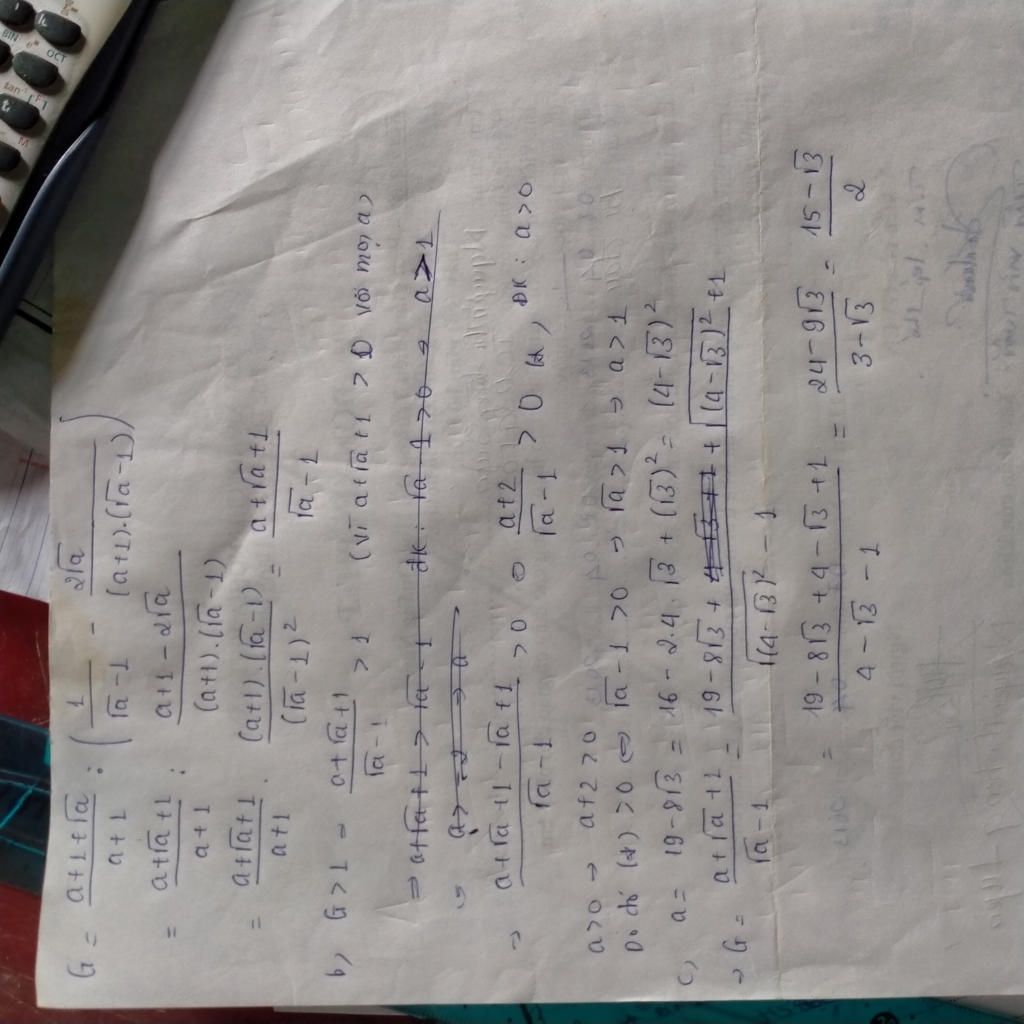 G = (a+1+√a)/(a+1) : (1/(√a-1) - 2√a/((a+1).(√a-1)))
= (a+√a+1)/(a+1) : (a+1-2√a)/((a+1).(√a-1))
= (a+√a+1)/(a+1) . ((a+1).(√a-1))/(√a-1)² = (a+√a+1)/(√a-1)
b, G > 1 = (a+√a+1)/(√a-1) > 1 (vì a+√a+1 > 0 với mọi a>
⇒ a+√a+1 > √a-1 đk: √a-1 > 0 → a > 1
⇔ a > -2 → a
→ (a+√a+1-√a+1)/(√a-1) > 0 ⇔ (a+2)/(√a-1) > 0 (*), ĐK: a>0
a>0 → a+2 >0
Do đó (*) >0 ⇔ √a-1 >0 → √a>1 → a>1
c, a = 19-8√3 = 16-2.4.√3+(√3)² = (4-√3)²
→ G = (a+√a+1)/(√a-1) = (19-8√3+4-√3+1+√(4-√3)²+1)/(√(4-√3)²-1)
= (19-8√3+4-√3+1)/(4-√3-1) = (24-9√3)/(3-√3) = (15-√3)/2
BIN
OCT
tan⁻¹
F
M